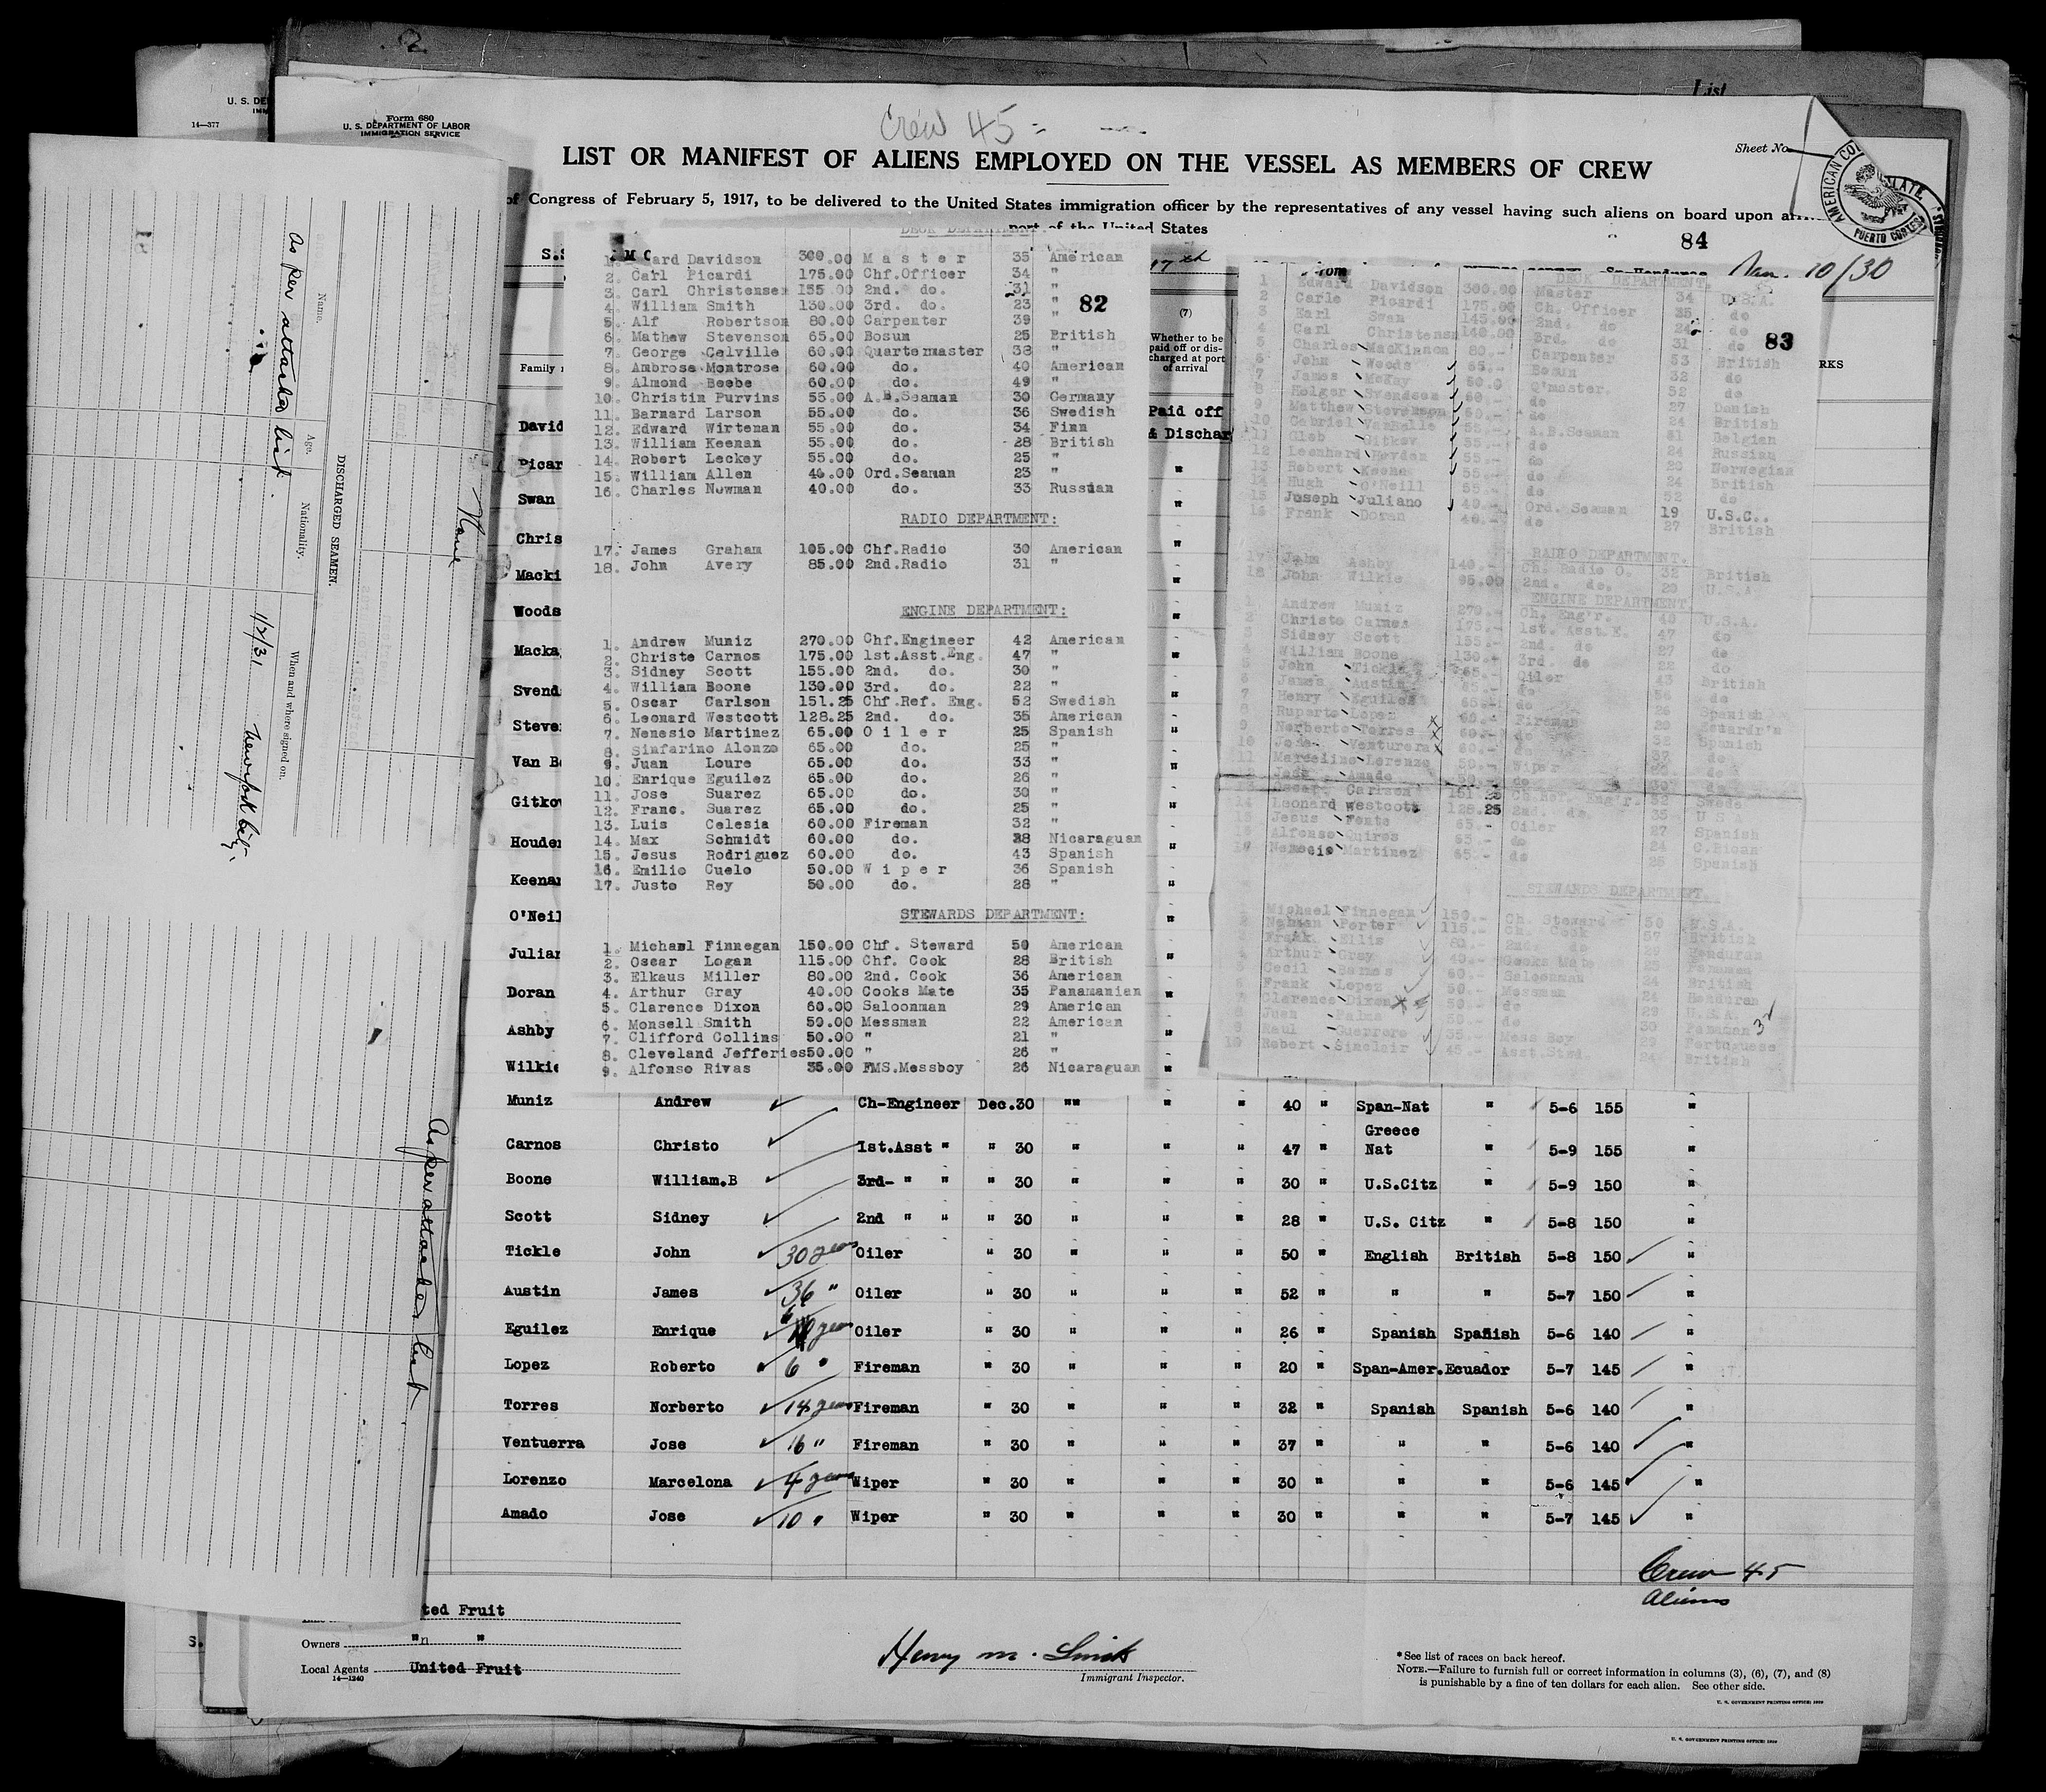 List
U. S. DE
14—377
Form 680
U. S. DEPARTMENT OF LABOR
IMMIGRATION SERVICE
Crew 45
Sheet No.
LIST OR MANIFEST OF ALIENS EMPLOYED ON THE VESSEL AS MEMBERS OF CREW
of Congress of February 5, 1917, to be delivered to the United States immigration officer by the representatives of any vessel having such aliens on board upon
port of the United States
AMERICAN CO
PUERTO CORTE
84
Jan. 10/30
S.S
Family
Name.
Age.
Nationality.
When and where signed on.
As per attached list.
1/2/31 New York City.
DISCHARGED SEAMEN.
None
As per attached list
DECK DEPARTMENT
82
1. ward Davidson 300.00 Master 35 American
2. Carl Picardi 175.00 Chf.Officer 34 "
3. Carl Christensen 155.00 2nd. do. 31 "
4. William Smith 130.00 3rd. do. 23 "
5. Alf Robertson 80.00 Carpenter 39 "
6. Mathew Stevenson 65.00 Bosun 25 British
7. George Colville 60.00 Quartermaster 38 "
8. Ambrose Montrose 60.00 do. 40 American
9. Almond Beebe 60.00 do. 49 "
10. Christin Purvins 55.00 A.B.Seaman 30 Germany
11. Barnard Larson 55.00 do. 36 Swedish
12. Edward Wirtenan 55.00 do. 34 Finn
13. William Keenan 55.00 do. 28 British
14. Robert Lackey 55.00 do. 25 "
15. William Allen 40.00 Ord.Seaman 23 "
16. Charles Newman 40.00 do. 33 Russian
RADIO DEPARTMENT:
17. James Graham 105.00 Chf.Radio 30 American
18. John Avery 85.00 2nd.Radio 31 "
ENGINE DEPARTMENT:
1. Andrew Muniz 270.00 Chf.Engineer 42 American
2. Christe Carnos 175.00 1st.Asst.Eng. 47 "
3. Sidney Scott 155.00 2nd. do. 30 "
4. William Boone 130.00 3rd. do. 22 "
5. Oscar Carlson 151.25 Chf.Ref. Eng. 52 Swedish
6. Leonard Westcott 128.25 2nd. do. 35 American
7. Nenesio Martinez 65.00 Oiler 25 Spanish
8. Sinfarino Alonzo 65.00 do. 25 "
9. Juan Loure 65.00 do. 33 "
10. Enrique Eguilez 65.00 do. 26 "
11. Jose Suarez 65.00 do. 30 "
12. Franc. Suarez 65.00 do. 25 "
13. Luis Celesia 60.00 Fireman 32 "
14. Max Schmidt 60.00 do. 38 Nicaraguan
15. Jesus Rodriguez 60.00 do. 43 Spanish
16. Emilio Cuelo 50.00 Wiper 36 Spanish
17. Justo Rey 50.00 do. 28 "
STEWARDS DEPARTMENT:
1. Michael Finnegan 150.00 Chf. Steward 50 American
2. Oscar Logan 115.00 Chf. Cook 28 British
3. Elkaus Miller 80.00 2nd. Cook 36 American
4. Arthur Gray 40.00 Cooks Mate 35 Panamanian
5. Clarence Dixon 60.00 Saloonman 29 American
6. Monsell Smith 50.00 Messman 22 American
7. Clifford Collins 50.00 " 21 "
8. Cleveland Jefferies 50.00 " 26 "
9. Alfonso Rivas 35.00 FMS.Messboy 26 Nicaraguan
(7)
Whether to be
paid off or dis-
charged at port
of arrival
Paid off
& Dischar
RKS
83
DECK DEPARTMENT
1 Edward Davidson 300.00 Master 34 U.S.A.
2 Carlo Picardi 175.00 Ch. Officer 35 do
3 Earl Swan 145.00 2nd. do do
4 Carl Christensn 140.00 3rd. do 31 do
5 Charles MacKinnon 80.- Carpenter 53 British
6 John Woods 65.- Bosun 32 do
7 James McKay Q'master. 52 do
8 Holger Svendsen 60.- do 27 Danish
9 Matthew Stevenson do 24 British
10 Gabriel VanBelle A.B.Seaman Belgian
11 Gleb Gitkov 55.- do 24 Russian
12 Leonhard Heyden 55.- do 20 Norwegian
13 Robert Keene 55.- do 24 British
14 Hugh O'Neill 55.- do 52 do
15 Joseph Juliano 40.- Ord. Seaman 19 U.S.C.
16 Frank Doran 40.- do 27 British
RADIO DEPARTMENT.
17 John Ashby 140.- Ch. Radio O. 32 British
18 John Wilkie 95.00 2nd. do. 20 U.S.A.
ENGINE DEPARTMENT
1 Andrew Muniz 270.- Ch. Eng'r. 40 U.S.A.
Christo Carnes 175.- 1st. Asst E. 47 do
Sidney Scott 155.- 2nd. do 27 do
William Boone 130.- 3rd. do 22 do
John Tickle 65.- Oiler 43 British
James Austin 65.- do 56 do
7 Henry Eguilez 65.- do 26 Spanish
8 Ruperto Lopez 60.- Fireman 20
9 Norberto Torres 60.- do 32 Spanish
10 Jose Venturera 60.- do 37 do
11 Marcelino Lorenzo 50.- Wiper do
Jose Amado 50.- do 30 do
Oscar Carlson 151.25 Ch Ref. Eng'r. 52 Swede
14 Leonard Westcott 128.25 2nd. do 35 U S
15 Jesus Fente 65.- Oiler 27 Spanish
16 Alfonso Quiros 65.- do 24 C.Rican
17 Nemecio Martinez 65.- do 25 Spanish
STEWARDS DEPARTMENT.
Michael Finnegan 150.- Ch. Steward 50 U.S.A.
Porter 115.- Ch. Cook 57 British
Frank Ellis 80.- 2nd. do 29 Honduran
Arthur Gray 40.- Cooks Mate Panaman
5 Cecil Barnes 60.- Saloonman 24 British
6 Frank Lopez 50.- Messman 24 Honduran
Clarence Dixon 50.- do 29 U.S.A.
8 Juan Palma 50.- do 30 Panaman
9 Raul Guerrero 35.- Mess Boy 29 Portuguese
10 Robert Sinclair 45.- Asst.Stwd. 24 British
David
Picar
Swan
Chris
Macki
Woods
Macka
Svend
Steve
Van B
Gitkov
Houde
Keena
O'Neil
Julian
Doran
Ashby
Wilkie
Muniz Andrew Ch-Engineer Dec.30 "" " " 40 " Span-Nat " 5-6 155 "
Carnos Christo 1st.Asst " " 30 " " " 47 " Greece Nat " 5-9 155 "
Boone William.B 3rd- " " " 30 " " " 30 " U.S.Citz " 5-9 150 "
Scott Sidney 2nd " " " 30 " " " 28 " U.S. Citz " 5-8 150 "
Tickle John 30 years Oiler " 30 " " " 50 " English British 5-8 150 "
Austin James 36 " Oiler " 30 " " " 52 " " " 5-7 150 "
Eguilez Enrique years Oiler " 30 " " " 26 " Spanish Spanish 5-6 140 "
Lopez Roberto 6 " Fireman " 30 " " " 20 " Span-Amer. Ecuador 5-7 145 "
Torres Norberto 14 years Fireman " 30 " " " 32 " Spanish Spanish 5-6 140 "
Ventuerra Jose 16 " Fireman " 30 " " " 37 " " " 5-6 140 "
Lorenzo Marcelona 4 years Wiper " 30 " " " 30 " " " 5-6 145 "
Amado Jose 10 " Wiper " 30 " " " 30 " " " 5-7 145 "
Crew 45
Aliens
ted Fruit
Owners " n "
Local Agents United Fruit
14—1240
Henry M. Smith
Immigrant Inspector.
* See list of races on back hereof.
NOTE.—Failure to furnish full or correct information in columns (3), (6), (7), and (8)
is punishable by a fine of ten dollars for each alien. See other side.
U. S. GOVERNMENT PRINTING OFFICE: 1929
S.
U. S. GOVERNMENT PRINTING OFFICE: 1929